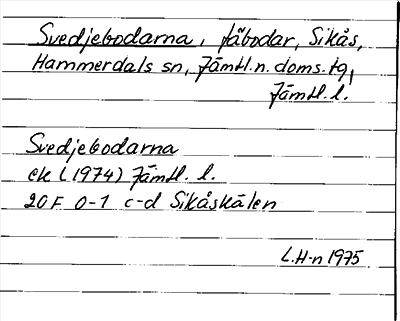 Svedjebodarna, fäbodar, Sikås,
Hammerdals sn, Jämtl.n. doms.tg,
Jämtl. l.
Svedjebodarna
ek (1974) Jämtl. l.
20F 0-1 c-d Sikåskälen
L.H-n 1975